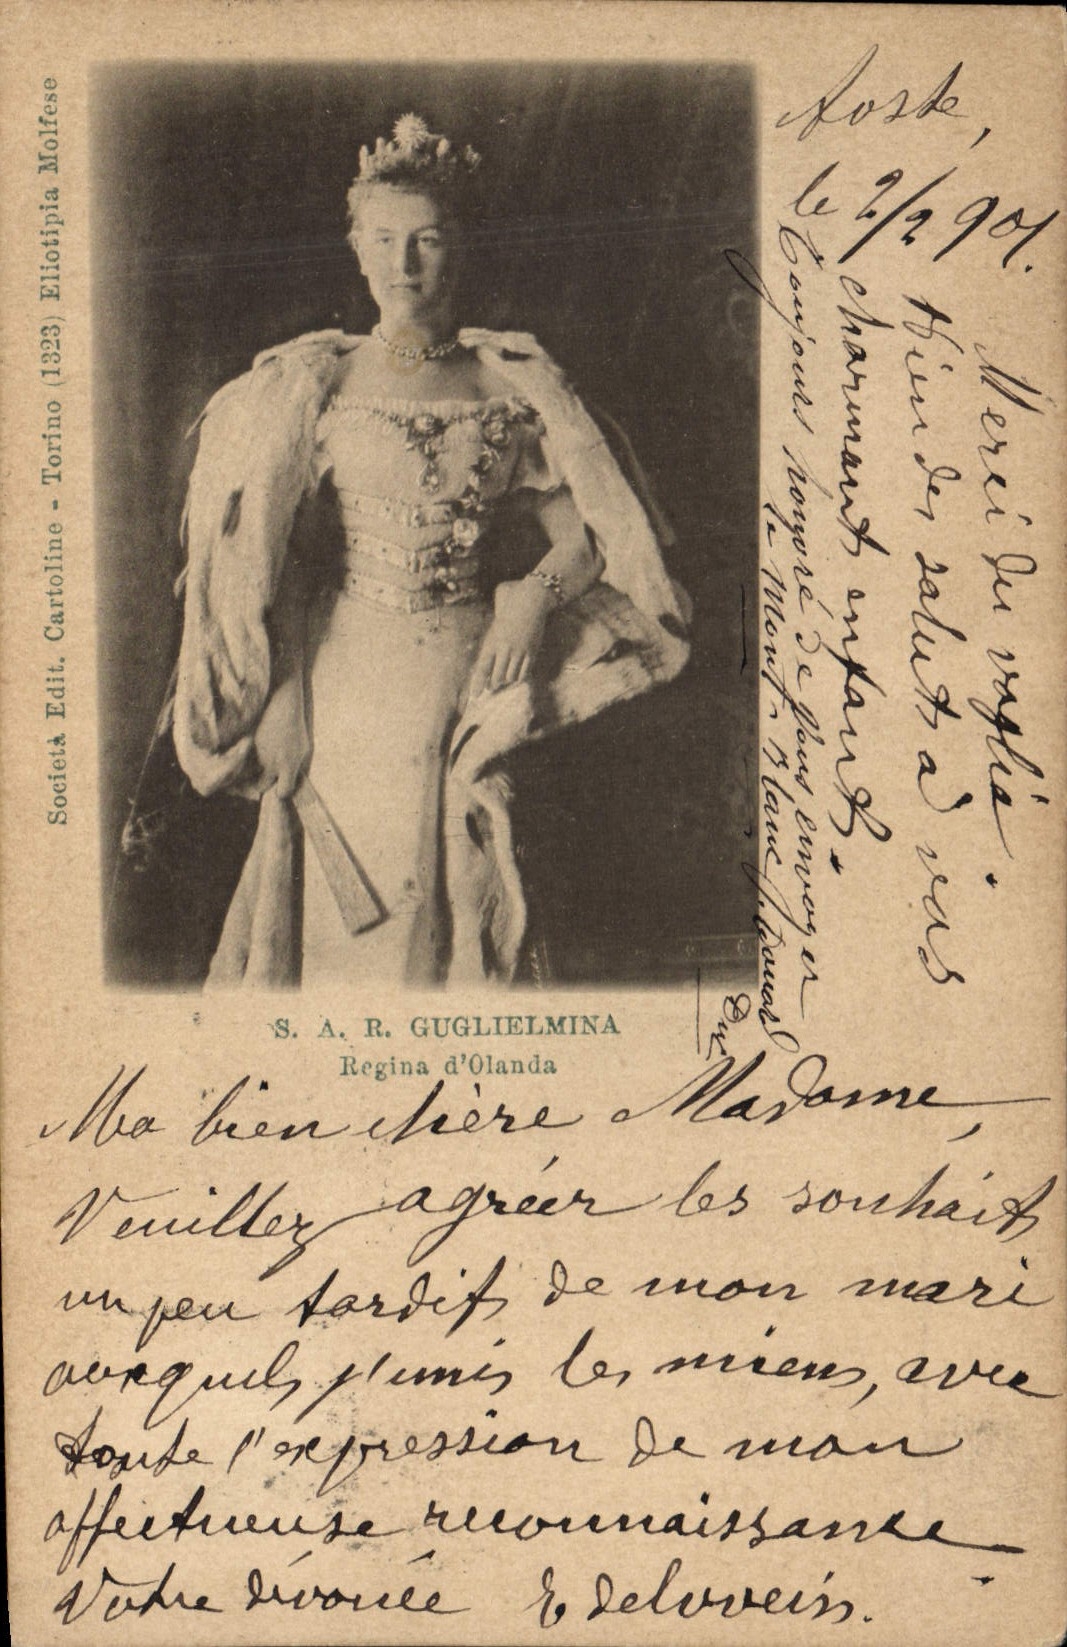 Società Edit. Cartoline - Torino (1323) Eliotipia Molfese
S. A. R. GUGLIELMINA
Regina d'Olanda
Aoste,
le 2/2 901.
Merci du
Bien des saluts à vos
charmants enfants.
Toujours honoré de vous envoyer
le Mont-Blanc
Ma bien chère Madame,
Veuillez agréer les souhaits
un peu tardifs de mon mari
auxquels j'unis les miens, avec
toute l'expression de mon
affectueuse reconnaissance
Votre dévouée Edelweis.